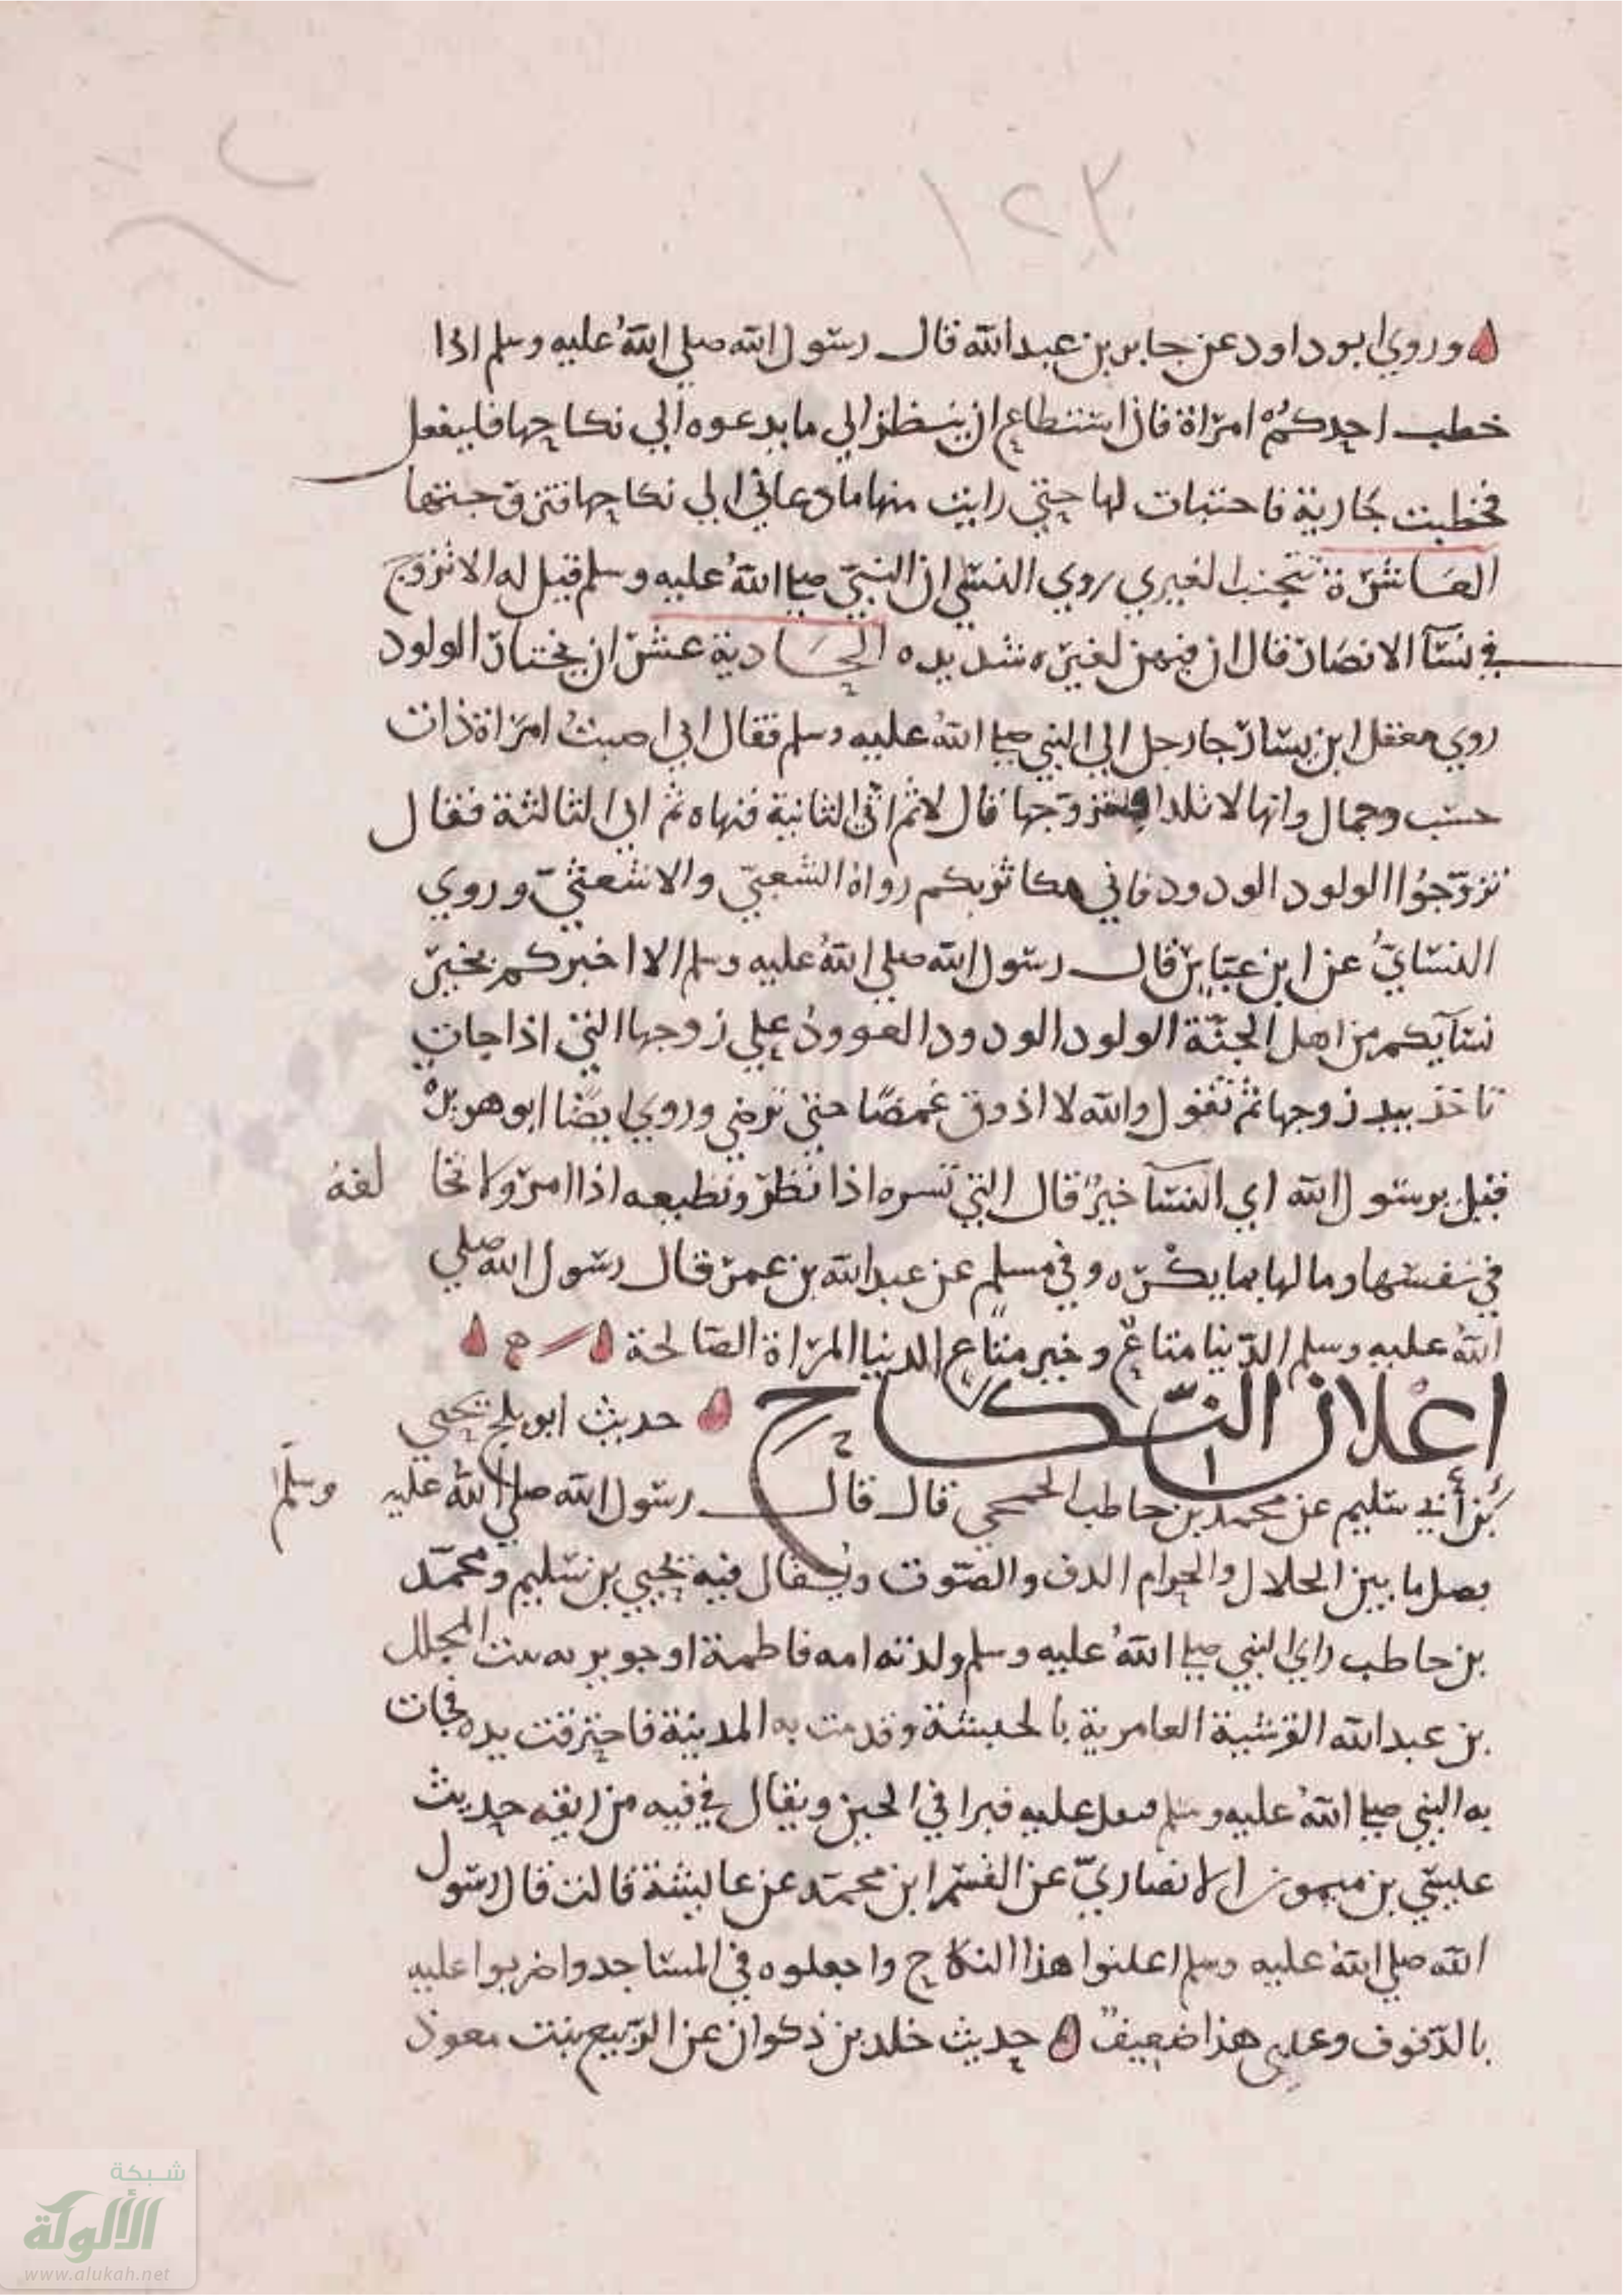 ١٢٣
وروي ابو داود عن جابر بن عبد الله قال رسول الله صلي الله عليه وسلم اذا
خطب احدكم امراة فان استطاع ان ينظر الي ما يدعوه الي نكاحها فليفعل
فخطبت جارية فاختبات لها حتي رايت منها ما دعاني الي نكاحها فتزوجتها
العاشرة تجنب الغيري روي النسي ان النبي صلي الله عليه وسلم قيل له الا تزوج
في نسآ الانصار قال ان فيهن لغيره شديده الحادية عشر ان يختار الولود
روي معقل ابن يسار جا رجل الي النبي صلي الله عليه وسلم فقال اني اصبت امراة ذات
حسب وجمال وانها لا تلد افتزوجها قال لا ثم اتي الثانية فنهاه ثم اتي الثالثة فقال
تزوجوا الولود الودود فاني مكاثر بكم رواه الشعبي والاشعثي وروي
النسايُ عن ابن عباس قال رسول الله صلي الله عليه وسلم الا اخبركم بخير
نسآيكم من اهل الجنّة الولود الودود العوود علي زوجها التي اذا جات
تاخذ بيد زوجها ثم تقول والله لا اذوق غمضًا حتي ترضي وروي ايضًا ابو هريرة
فقيل يرسول الله اي النسآ خير قال التي تسره اذا نظر وتطيعه اذا امر ولا تخا لفهُ
في نفسها ومالها بما يكره وفي مسلم عن عبد الله بن عمر قال رسول الله صلي
الله عليه وسلم الدّنيا متاعٌ وخير متاع الدنيا المراة الصالحة
اعلان النّكاح حديث ابو بلج يحيي
بن أبي سليم عن محمد بن حاطب الجمحي قال قال رسول الله صلي الله عليه وسلم
فصل ما بين الحلال والحرام الدف والصّوت ويُقال فيه يحيي بن سليم ومحمّد
بن حاطب راي النبي صلي الله عليه وسلم ولدته امه فاطمة او جويريه بنت المجلل
بن عبد الله القرشية العامرية بالحبشة وقدمت به المدينة فاحترقت يده فجات
به النبي صلي الله عليه وسلم فتفل عليه فبرا في الحين ويقال في فيه من ريقه حديث
عيسي بن ميمون الانصاريّ عن القسم ابن محمّد عن عايشة قالت قال رسول
الله صلي الله عليه وسلم اعلنوا هذا النكاح واجعلوه في المساجد واضربوا عليه
بالدّفوف وعيسي هذا ضعيفٌ حديث خلد بن ذكوان عن الرّبيع بنت معوذ
شبكة
الألوكة
www.alukah.net